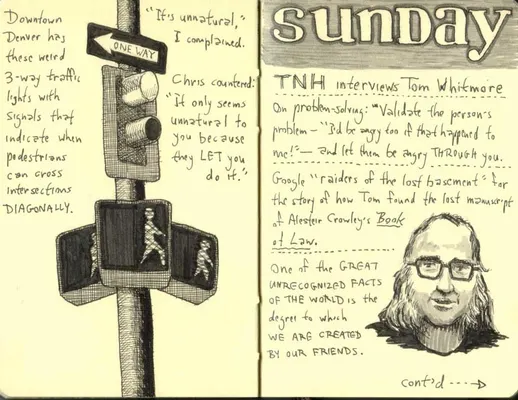 Downtown
Denver has
these weird
3-way traffic
lights with
signals that
indicate when
pedestrians
can cross
intersections
DIAGONALLY.
ONE WAY
"It's unnatural,"
I complained.
Chris countered:
"It only seems
unnatural to
you because
they LET you
do it."
SUNDAY
TNH interviews Tom Whitmore
On problem-solving: "Validate the person's
problem – "I'd be angy too if that happened to
me!" – and let them be angry THROUGH you.
Google "raiders of the lost basement" for
the story of how Tom found the lost manuscript
of Alesteir Crowley's Book
of Law.
ONE of the GREAT
UNRECOGNIZED FACTS
OF THE WORLD is the
degree to which
WE ARE CREATED
BY OUR FRIENDS.
cont'd